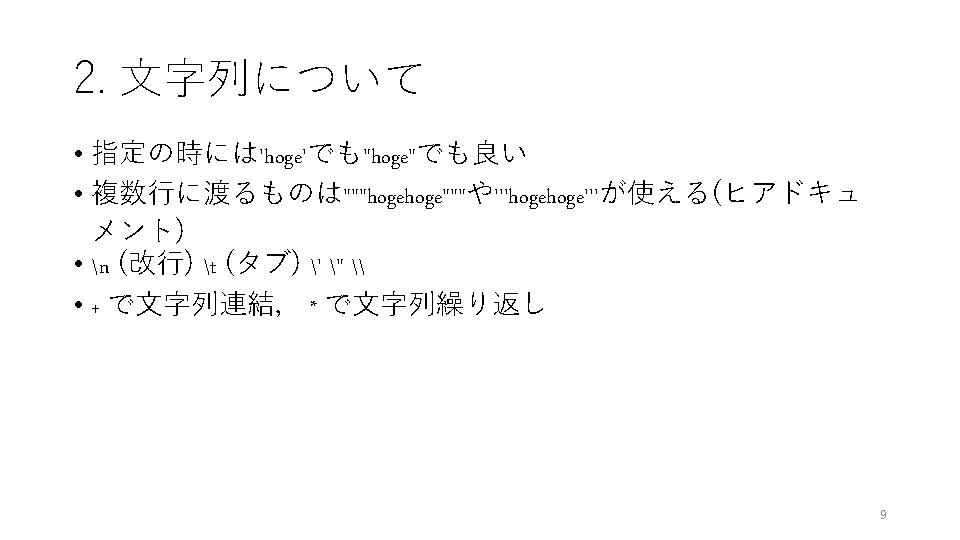 2. 文字列について
• 指定の時には'hoge'でも"hoge"でも良い
• 複数行に渡るものは"""hogehoge"""や'''hogehoge'''が使える(ヒアドキュ
メント)
• \n (改行) \t (タブ) \' \" \\
• + で文字列連結， * で文字列繰り返し
9